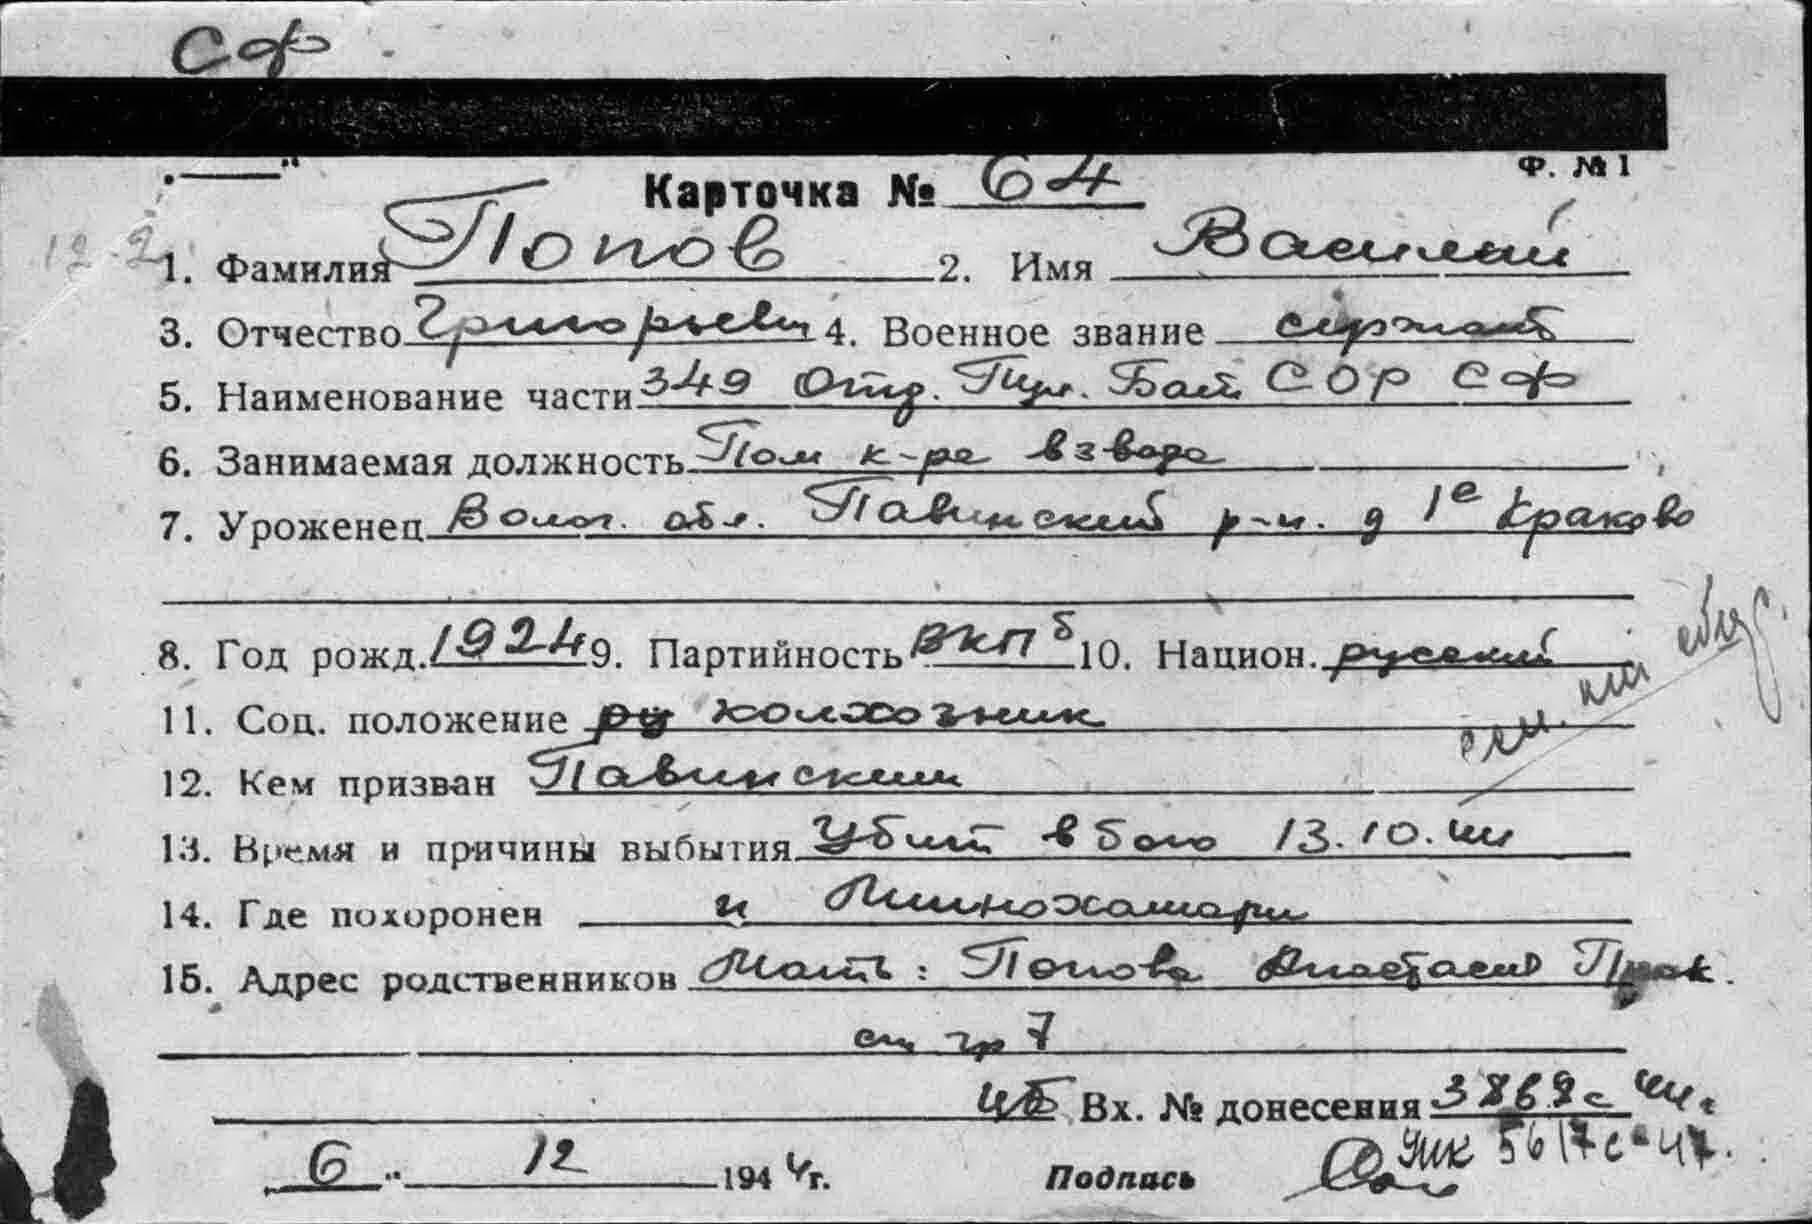 СФ
Ф. № 1
Карточка № 64
1. Фамилия Попов 2. Имя Василий
3. Отчество Григорьевич 4. Военное звание сержант
5. Наименование части 349 Отд. Пул. Бат. СОР СФ
6. Занимаемая должность Пом к-ра взвода
7. Уроженец Волог. обл. Павинский р-н. д 1е Краково
8. Год рожд. 1924 9. Партийность ВКПб 10. Национ. русский
11. Соц. положение ру колхозник
12. Кем призван Павинским
13. Время и причины выбытия Убит в бою 13.10.44
14. Где похоронен
15. Адрес родственников Мать: Попова Анастасия Прок.
см гр 7
Вх. № донесения
6 " 12 1944г. Подпись